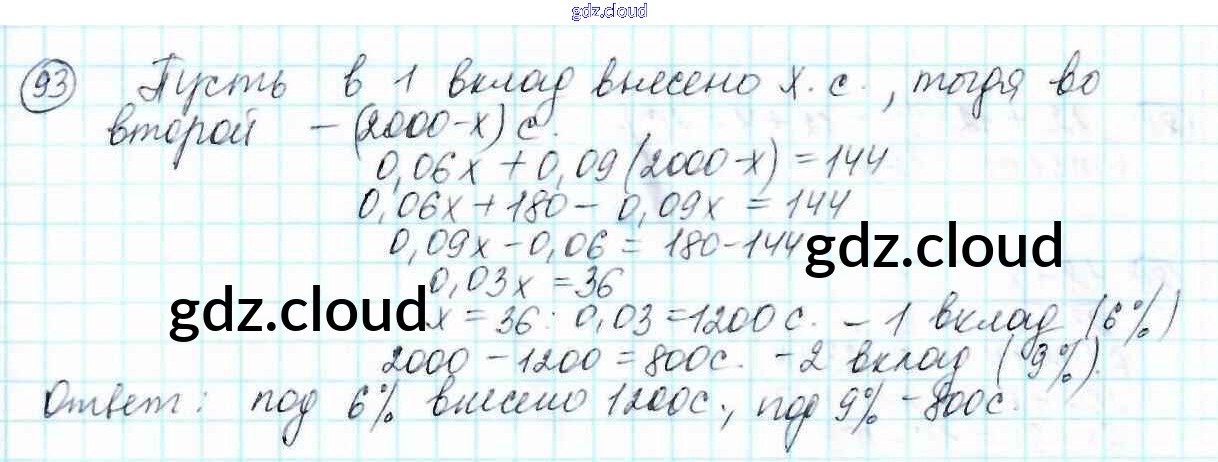 gdz.cloud
93 Пусть в 1 вклад внесено x.с., тогда во
второй – (2000-x) с.
0,06x + 0,09(2000-x) = 144
0,06x + 180 - 0,09x = 144
0,09x - 0,06 = 180-144
gdz.cloud
0,03x = 36
gdz.cloud
x = 36 : 0,03 = 1200 с. – 1 вклад (6%)
2000 - 1200 = 800с. - 2 вклад (9%).
Ответ: под 6% внесено 1200с., под 9% - 800с.